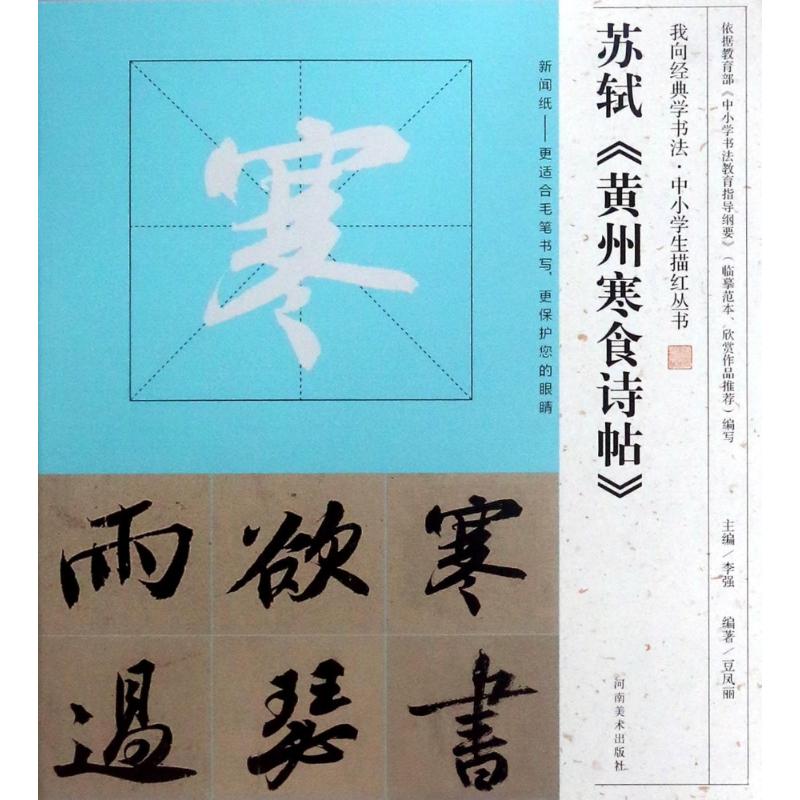 依据教育部《中小学书法教育指导纲要》（临摹范本、欣赏作品推荐）编写
主编／李强　编著／豆凤丽
我向经典学书法·中小学生描红丛书
苏轼《黄州寒食诗帖》
河南美术出版社
新闻纸——更适合毛笔书写，更保护您的眼睛
寒
寒书
欲瑟
雨過